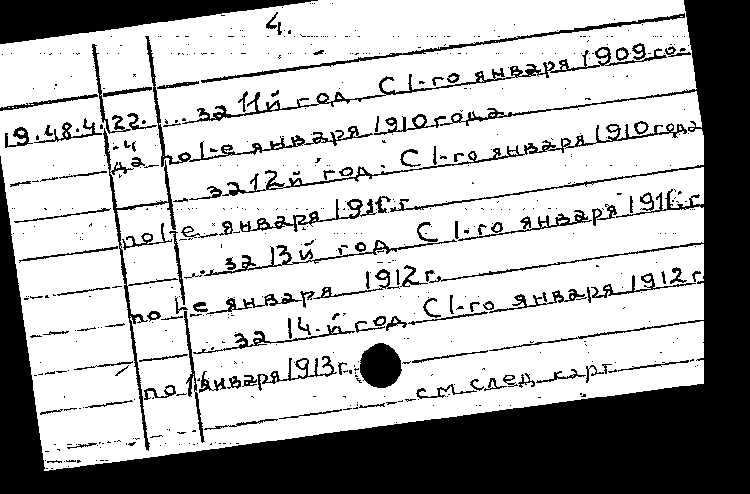 4.
19.48.4.122. ... за 11й год. С 1-го января 1909 го-
-4
да по 1-е января 1910 года.
... за 12й год. С 1-го января 1910 года
по 1-е января 1911 г.
... за 13й год. С 1-го января 1911 г.
по 1-е января 1912 г.
... за 14-й год. С 1-го января 1912 г.
по 1 января 1913 г.
см. след. карт.